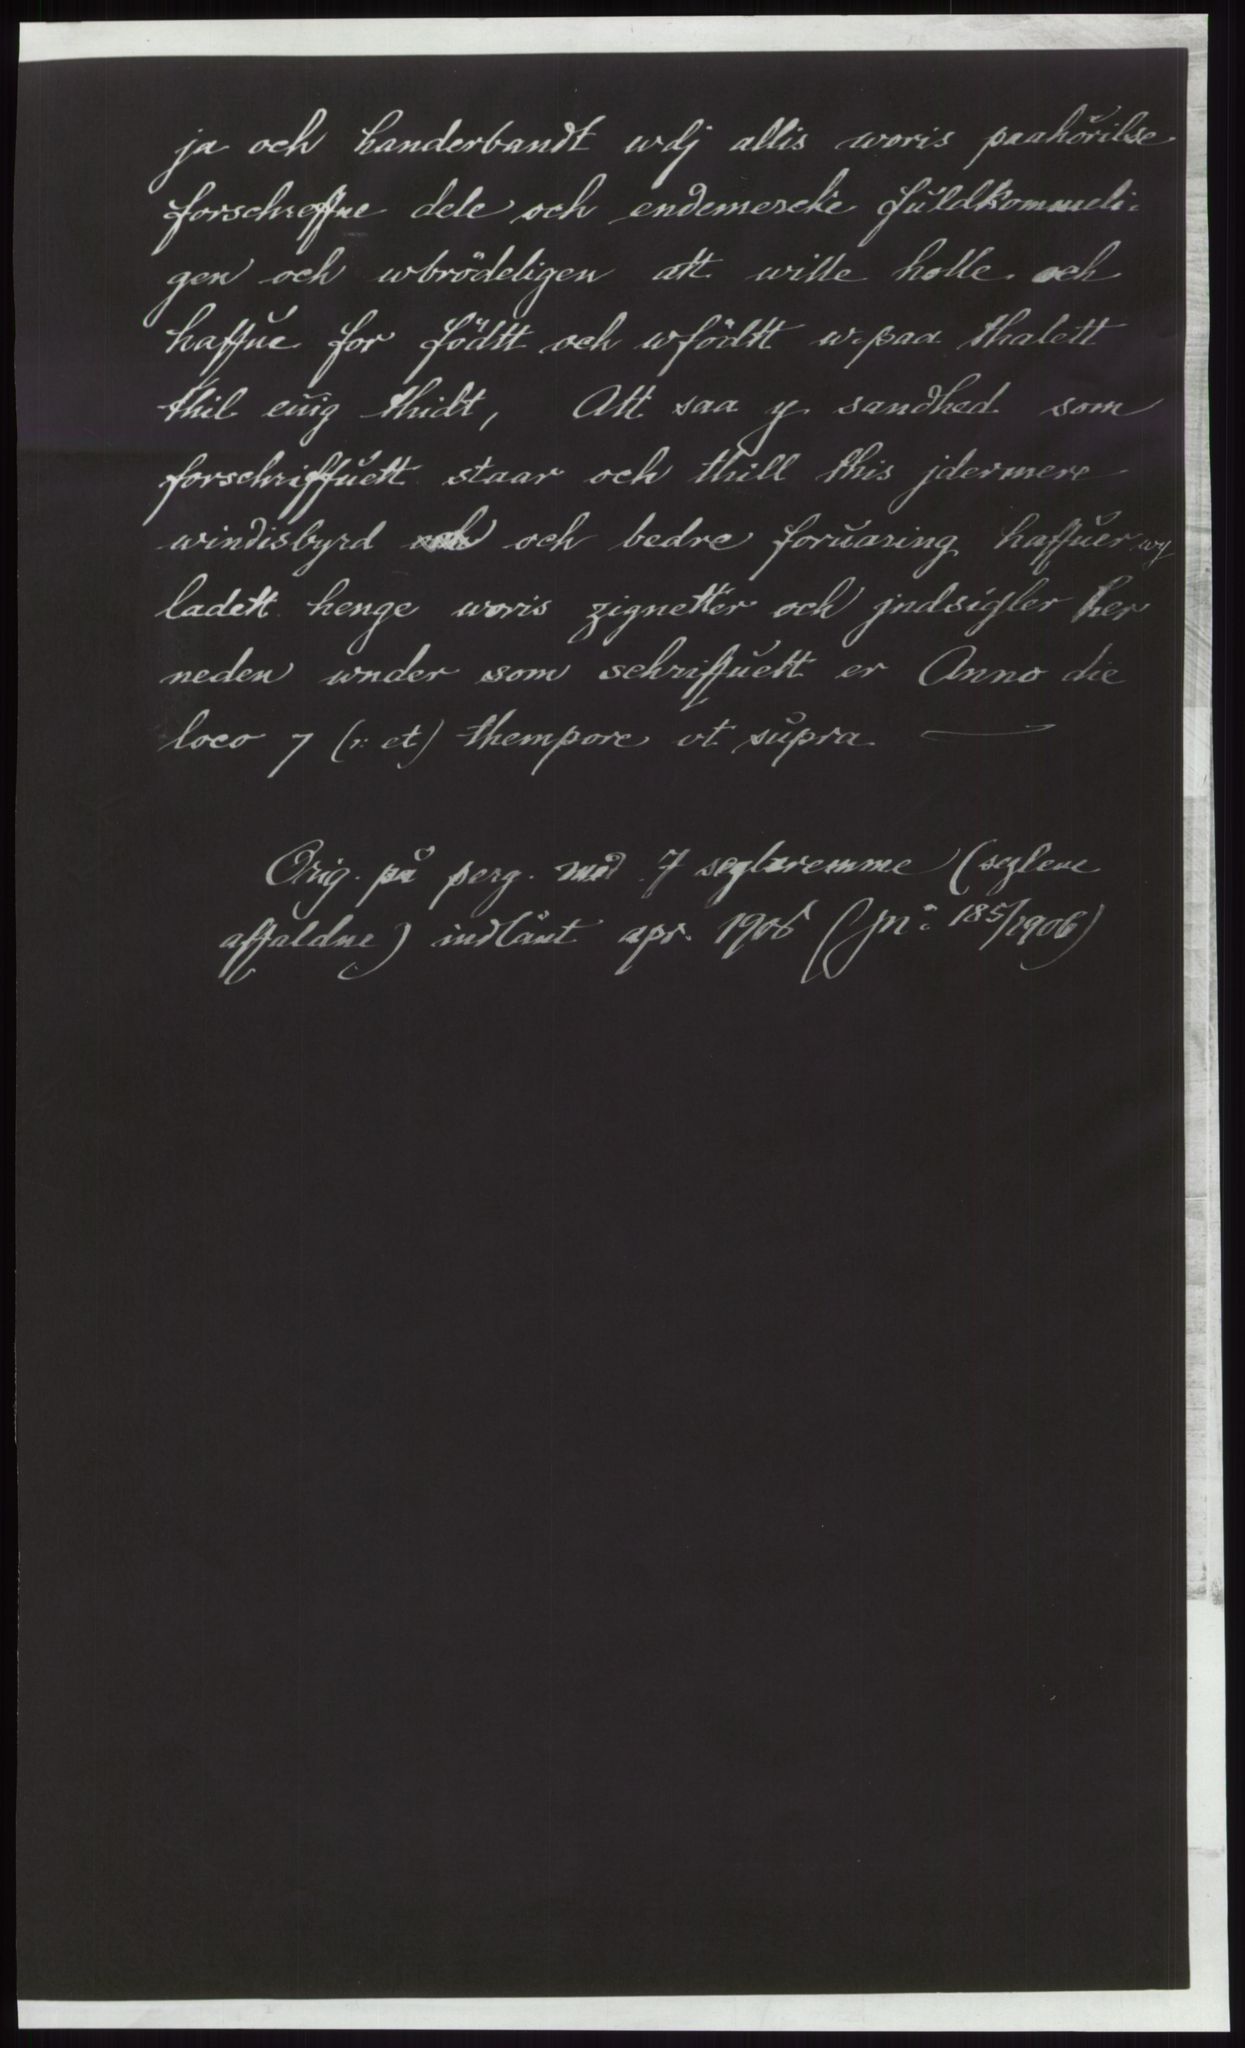 ja och handerbandt wdj allis woris paahörilse
forschreffne dele och endemercke fuldkommeli-
gen och wbrödeligen att wille holle och
haffue for födtt och wfödtt w-paa thalett
thil euig thidt, Att saa y sandhed som
forschriffuett staar och thill this jdermere
windisbyrd och bedre foruaring haffuer wy
ladett henge woris zignetter och jndsigler her
neden wnder som schriffuett er Anno die
loco 7 (ɔ: et) thempore vt supra —
Orig. på perg. med 7 seglremme (seglene
affaldne) indlånt apr. 1906 (Jn: 185/1906)